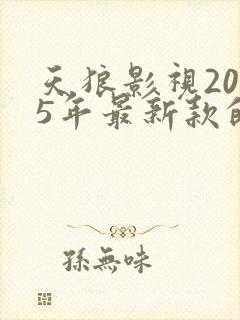 天狼影視20
5年最新款的
孫無味